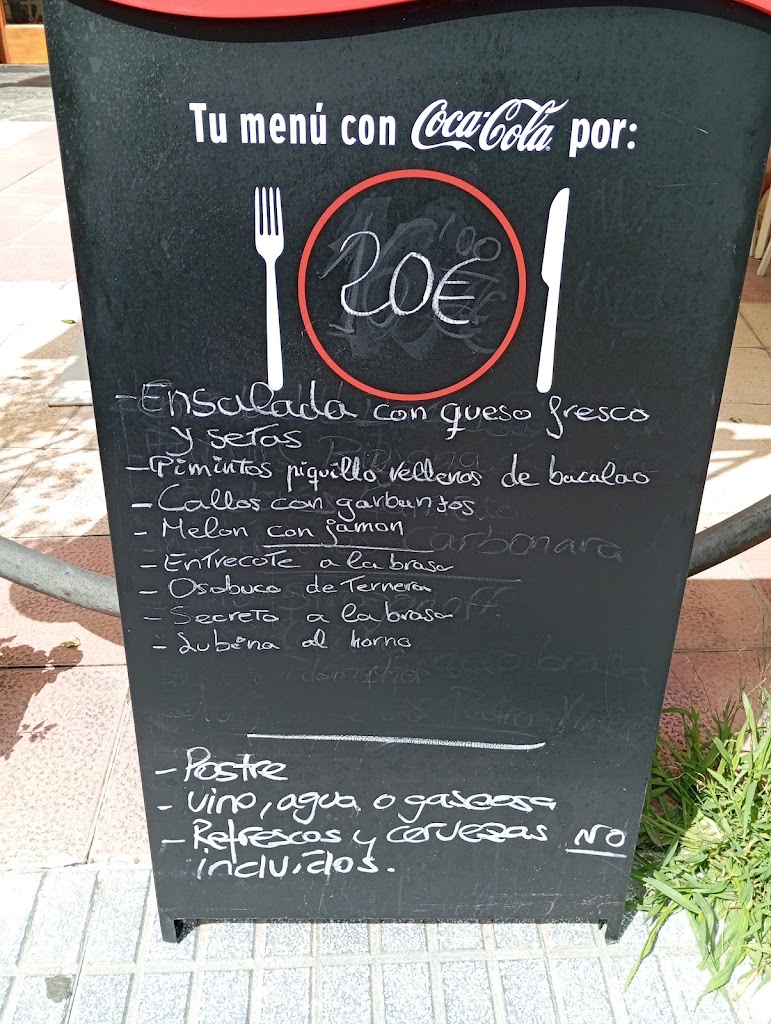 Tu menú con Coca-Cola por:
20€
- Ensalada con queso fresco
y setas
- Pimintos piquillo rellenos de bacalao
- Callos con garbanzos
- Melon con jamon
- Entrecote a la brasa
- Osobuco de Ternera
- Secreto a la brasa
- Lubina al horno
- Postre
- Vino, agua o gaseosa
- Refrescos y cervezas NO
incluidos.